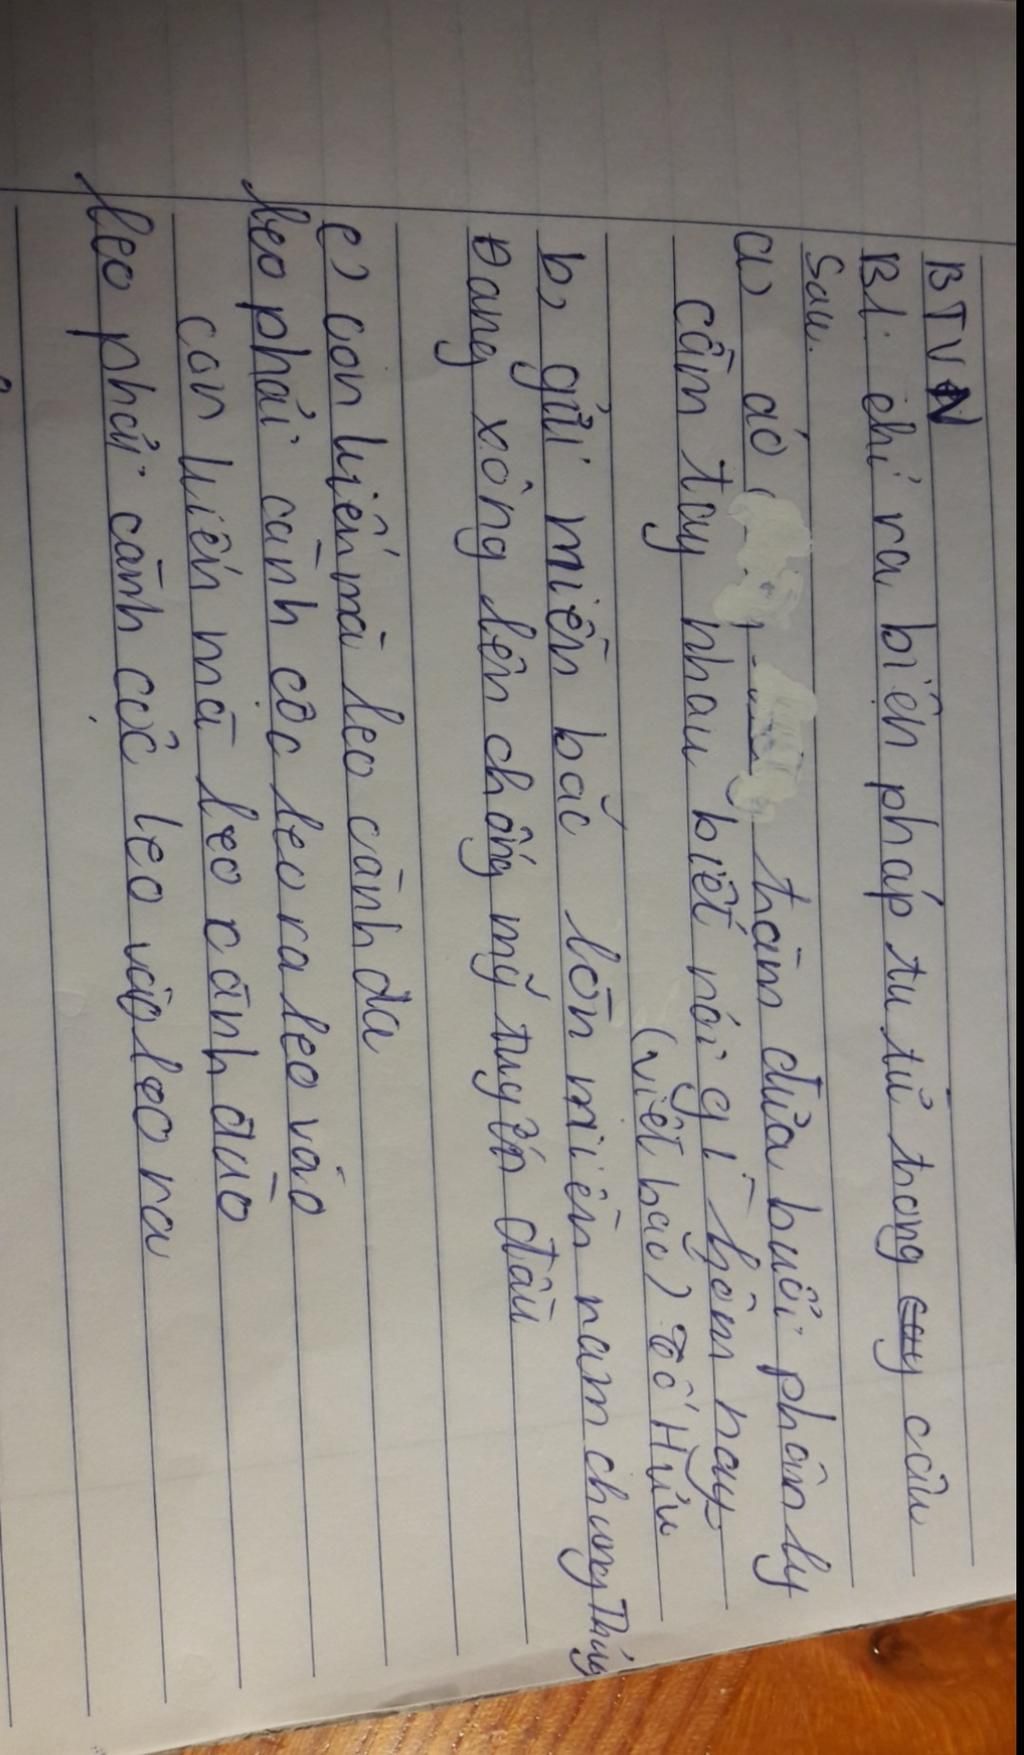 BTVN
B1. chỉ ra biện pháp tu từ trong câu
sau.
a) áo hàm đưa buổi phân ly
cầm tay nhau biết nói gì hôm nay
(việt bắc) Tố Hữu
b, gửi miền bắc lòn miền nam chung Thủy
Đang xông lên chống mỹ tuyến đầu
c) con kiến mà leo cành đa
leo phải cành cộc leo ra leo vào
con kiến mà leo cành đào
leo phải cành cộc leo vào leo ra